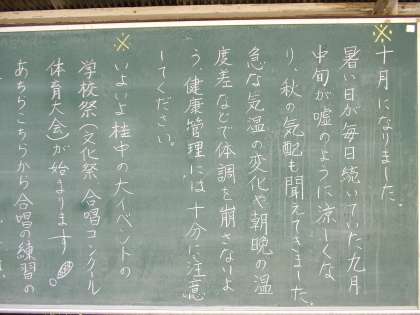 ※十月になりました。
暑い日が毎日続いていた九月
中旬が嘘のように涼しくな
り、秋の気配も聞えてきました。
急な気温の変化や朝晩の温
度差などで体調を崩さないよ
う、健康管理には十分に注意
してください。
※いよいよ桂中の大イベントの
学校祭(文化祭 合唱コンクール
体育大会)が始まります。
あちらこちらから合唱の練習の